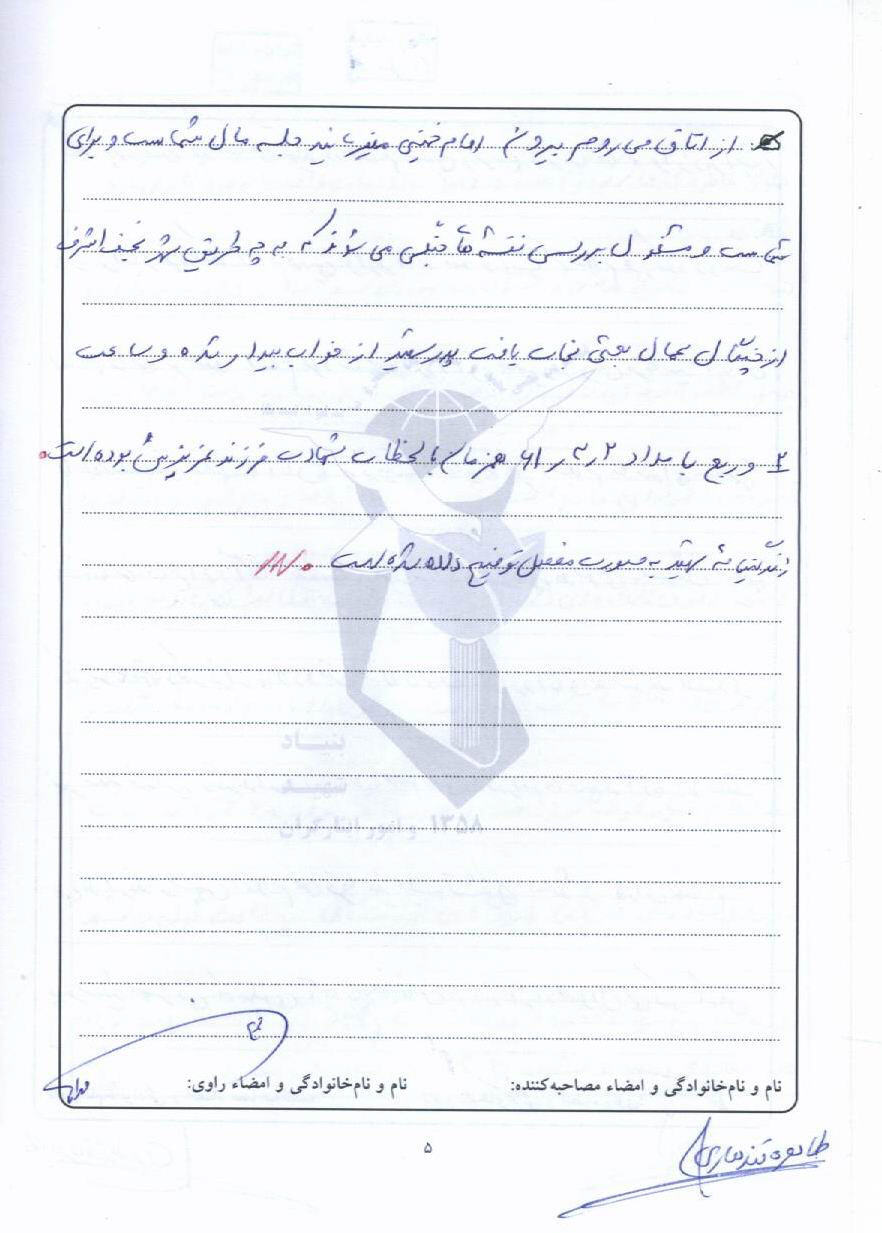 از اتاق می روم بیرون امام خمینی میفرمایند جلسه مال شماست و برای
شماست و مشغول بررسی نقشه های جنگی می شوند که به چه طریق شهر نجف اشرف
از چنگال عمال بعثی نجات یافت پدر شهید از خواب بیدار شده و ساعت
۲ و ربع بامداد ۶۱٫۳٫۲ همزمان با لحظات شهادت فرزند عزیزش بوده است.
زندگینامه شهید به صورت مفصل توضیح داده شده است
بنیاد
شهید
و امور ایثارگران ۱۳۵۸
نام و نام‌خانوادگی و امضاء مصاحبه‌کننده: نام و نام‌خانوادگی و امضاء راوی:
۵